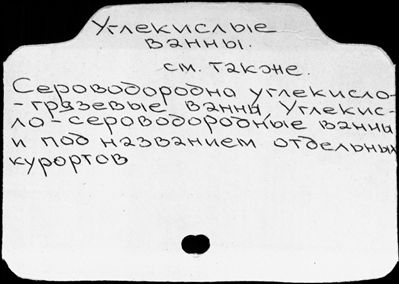 Углекислые
ванны.
см. также.
Сероводородно углекисло-
-грязевые ванны, Углекис-
ло-сероводородные ванны
и под названием отдельных
курортов